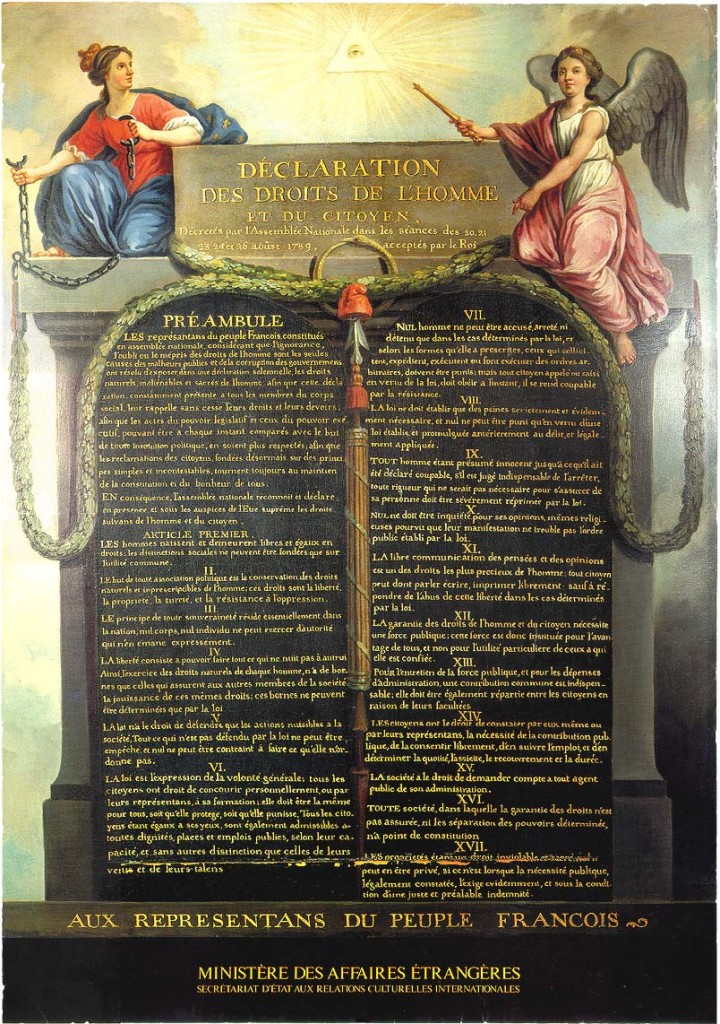 DÉCLARATION
DES DROITS DE L'HOMME
ET DU CITOYEN,
Décretés par l'Assemblée Nationale dans les séances des 20, 21
23, 24 et 26 août 1789, acceptés par le Roi
PRÉAMBULE
LES représantans du peuple François, constitués
en assemblée nationale, considérant que l'ignorance,
l'oubli ou le mépris des droits de l'homme sont les seules
causes des malheurs publics et de la corruption des gouvernemens
ont résolu d'exposer dans une déclaration solemnelle, les droits
naturels, inaliénables et sacrés de l'homme: afin que cette décla
ration, constamment présente a tous les membres du corps
social, leur rappelle sans cesse leurs droits et leurs devoirs;
afin que les actes du pouvoir législatif et ceux du pouvoir exé
cutif, pouvant être à chaque instant comparés avec le but
de toute institution politique, en soient plus respectés; afin que
les reclamations des citoyens, fondées désormais sur des princi
pes simples et incontestables, tournent toujours au maintien
de la constitution et du bonheur de tous.
EN conséquence, l'assemblée nationale reconnoit et déclare
en presence et sous les auspices de l'Etre suprême les droits
suivans de l'homme et du citoyen.
ARTICLE PREMIER.
LES hommes naissent et demeurent libres et égaux en
droits; les distinctions sociales ne peuvent être fondées que sur
l'utilité commune.
II.
LE but de toute association politique est la conservation des droits
naturels et inprescriptibles de l'homme; ces droits sont la liberté,
la propriete, la sureté, et la résistance à l'oppression.
III.
LE principe de toute souveraineté réside essentiellement dans
la nation, nul corps, nul individu ne peut exercer d'autorité
qui n'en émane expressement.
IV.
LA liberté consiste a pouvoir faire tout ce qui ne nuit pas à autrui
Ainsi, l'exercice des droits naturels de chaque homme, n'a de bor-
nes que celles qui assurent aux autres membres de la société
la jouissance de ces mêmes droits; ces bornes ne peuvent
être déterminées que par la loi
V.
LA loi n'a le droit de défendre que les actions nuisibles a la
société. Tout ce qui n'est pas défendu par la loi ne peut être
empêché, et nul ne peut être contraint à faire ce qu'elle n'or-
donne pas.
VI.
LA loi est l'expression de la volonté générale; tous les
citoyens ont droit de concourir personnellement, ou par
leurs représentans, à sa formation; elle doit être la même
pour tous, soit qu'elle protege, soit qu'elle punisse. Tous les cito-
yens étant égaux a ses yeux, sont également admissibles a-
toutes dignités, places et emplois publics, selon leur ca-
pacité, et sans autres distinction que celles de leurs
vertus et de leurs talens
VII.
NUL homme ne peut être accusé, arreté ni
détenu que dans les cas déterminés par la loi, et
selon les formes qu'elle a prescrites, ceux qui sollici-
tent, expédient, exécutent ou font exécuter des ordres ar-
bitraires, doivent être punis; mais tout citoyen appelé ou saisi
en vertu de la loi, doit obéir a l'instant, il se rend coupable
par la résistance.
VIII.
LA loi ne doit établir que des peines strictement et évidem-
ment nécessaire, et nul ne peut être puni qu'en vertu d'une
loi établie et promulguée antérierement au délit, et légale-
ment appliquée.
IX.
TOUT homme étant présumé innocent jusqu'a ce qu'il ait
été déclaré coupable, s'il est jugé indispensable de l'arrêter,
toute rigueur qui ne serait pas nécessaire pour s'assurer de
sa personne doit être sévérement réprimée par la loi.
X.
NUL ne doit être inquiété pour ses opinions, mêmes religi-
euses pourvu que leur manifestation ne trouble pas l'ordre
public établi par la loi.
XI.
LA libre communication des pensées et des opinions
est un des droits les plus precieux de l'homme; tout citoyen
peut dont parler écrire, imprimer librement: sauf à ré-
pondre de l'abus de cette liberté dans les cas déterminés
par la loi.
XII.
LA garantie des droits de l'homme et du citoyen nécessite
une force publique; cette force est donc instituée pour l'avan
tage de tous, et non pour l'utilité particuliere de ceux a qui
elle est confiée.
XIII.
Pour l'entretien de la force publique, et pour les dépenses
d'administration, une contribution commune est indispen-
sable; elle doit être également répartie entre les citoyens en
raison de leurs facultées
XIV.
LES citoyens ont le droit de constater par eux même ou
par leurs représentans, la nécessité de la contribution pub-
lique, de la consentir librement, d'en suivre l'emploi, et d'en
déterminer la quotité, l'assiette, le recouvrement et la durée.
XV.
LA société a le droit de demander compte a tout agent
public de son administration.
XVI.
TOUTE société, dans laquelle la garantie des droits n'est
pas assurée, ni les séparation des pouvoirs déterminée,
n'a point de constitution
XVII.
LES propriétés étant un droit inviolable et sacré, nul
peut en être privé, si ce n'est lorsque la nécessité publique,
légalement constatée, l'exige evidemment, et sous la condi
tion d'une juste et préalable indemnité.
AUX REPRESENTANS DU PEUPLE FRANCOIS
MINISTÈRE DES AFFAIRES ÉTRANGÈRES
SECRÉTARIAT D'ÉTAT AUX RELATIONS CULTURELLES INTERNATIONALES